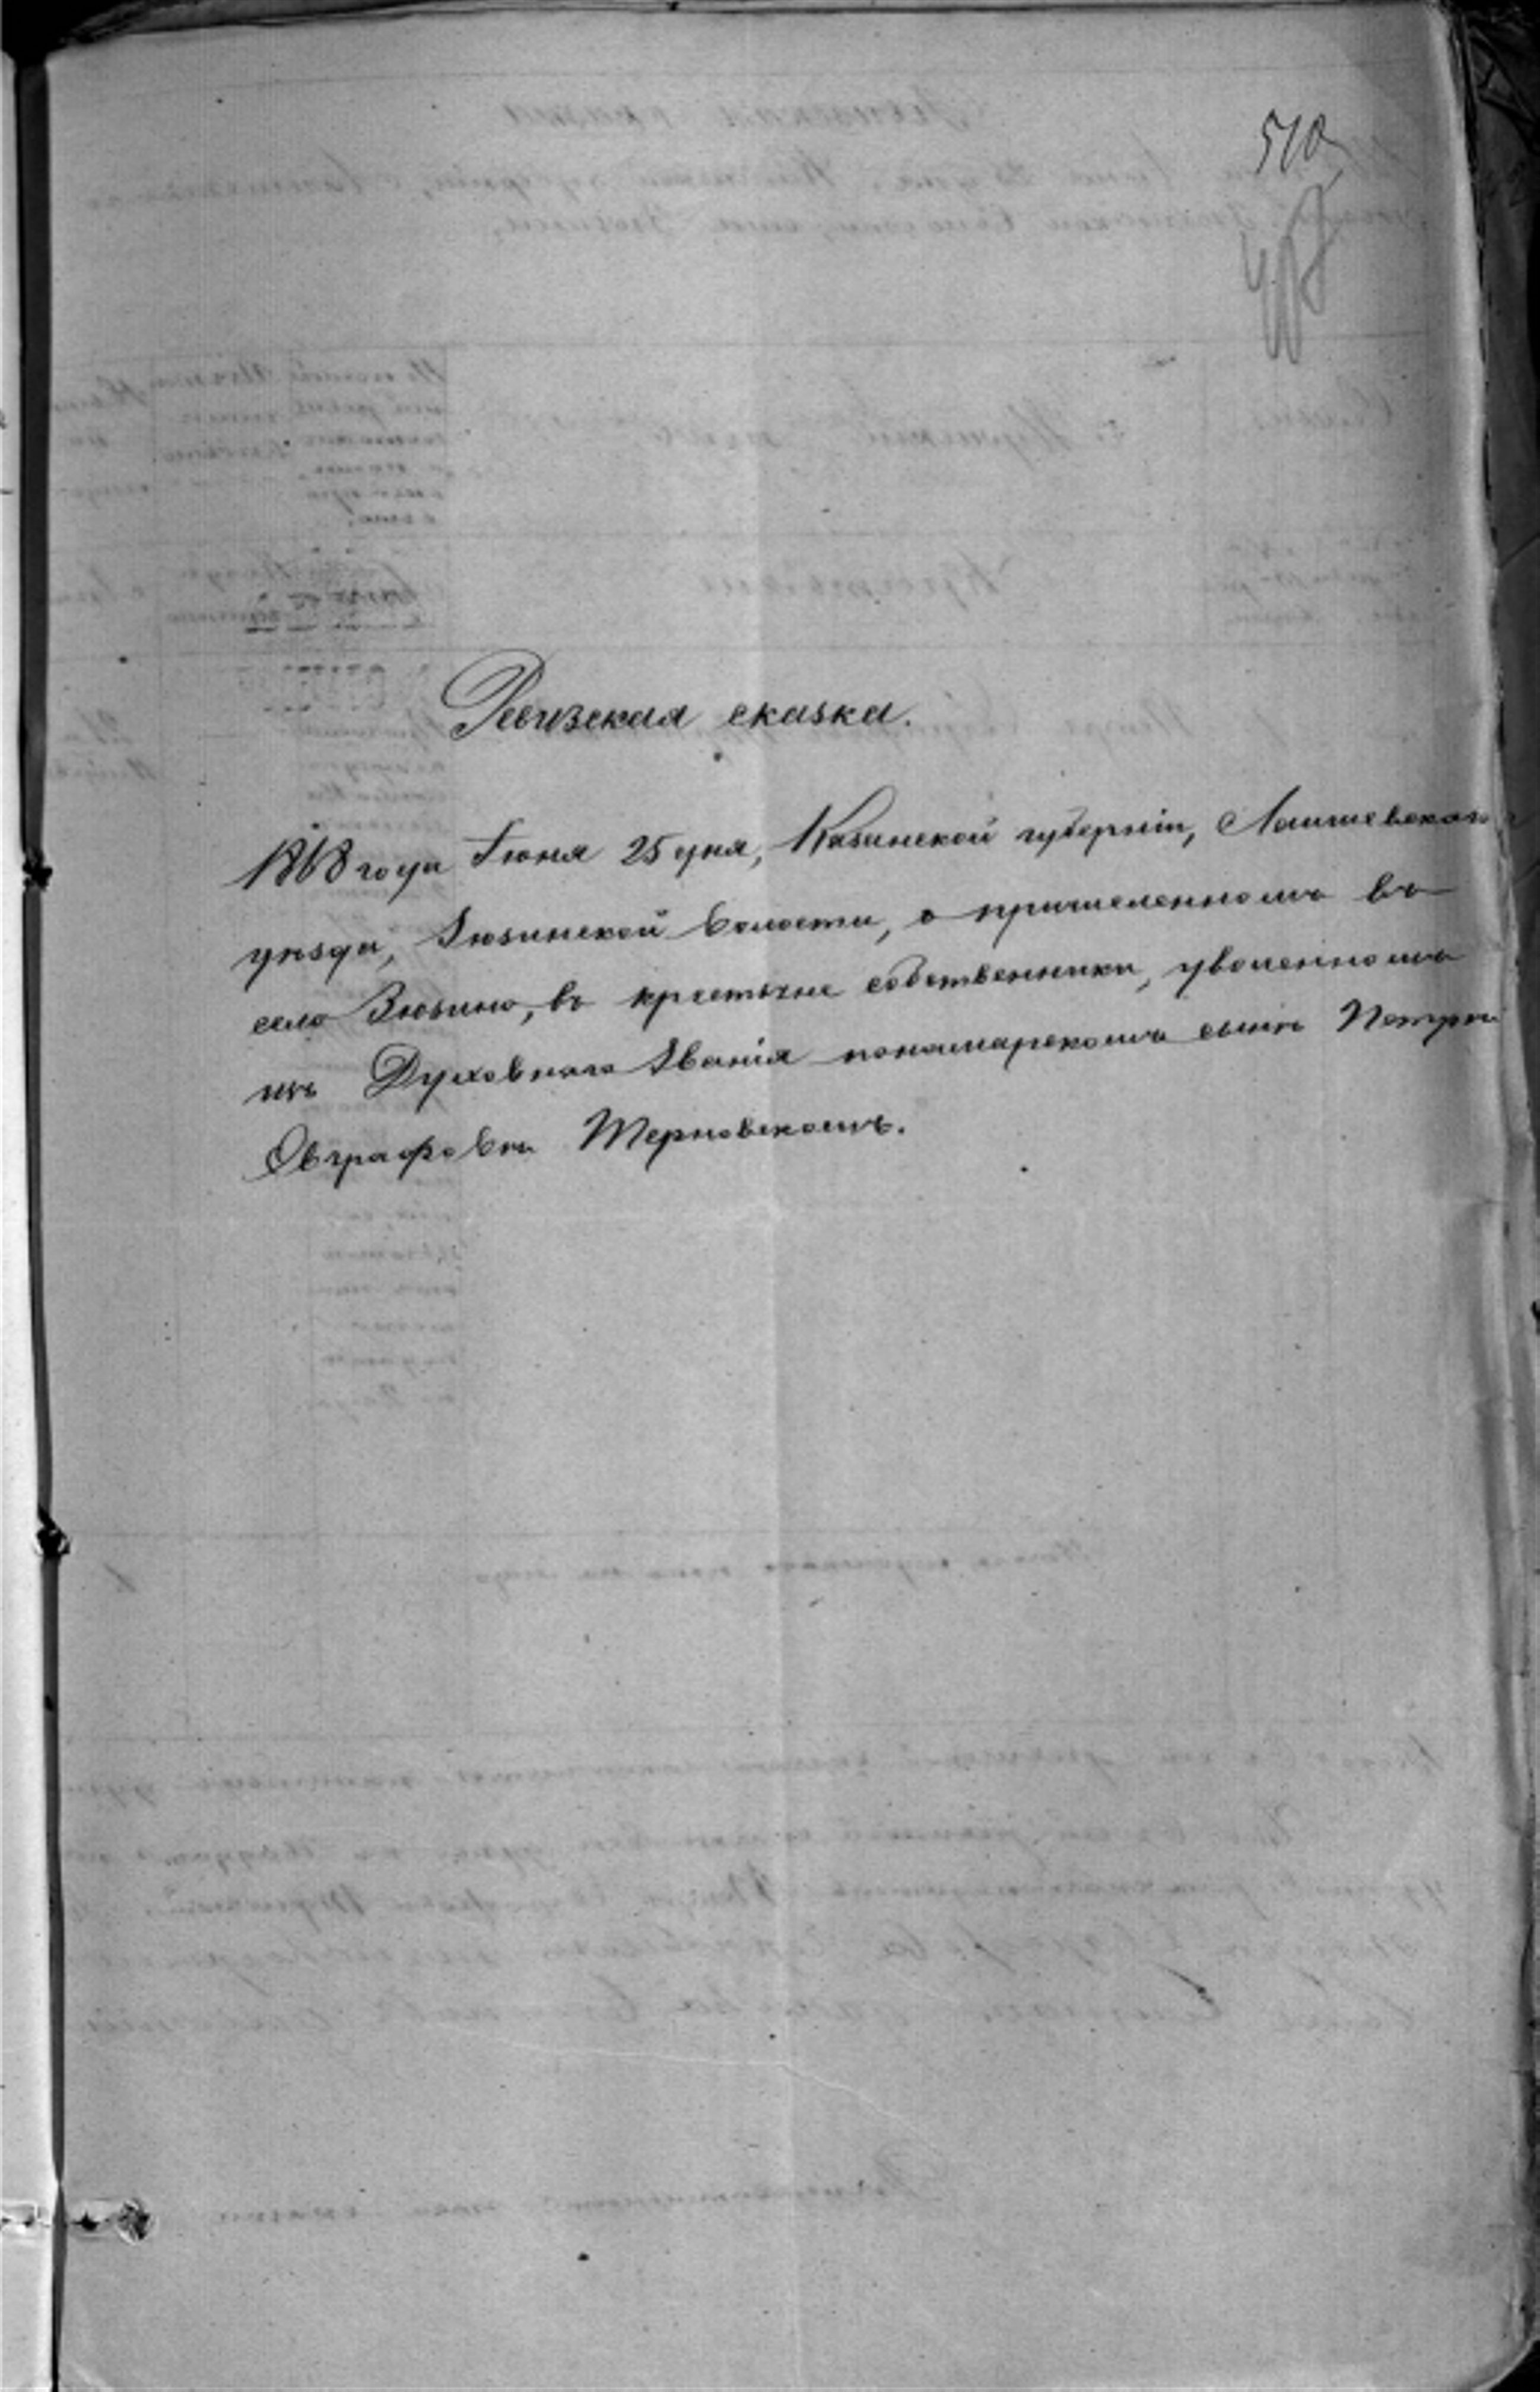 510
Ревизская сказка.
1868 года Іюня 25 дня, Казанской губерніи, Лаишевскаго
уѣзда, Зюзинской волости, о причисленномъ въ
село Зюзино, въ крестьяне собственники, уволенномъ
изъ Духовнаго Званія пономарскомъ сынѣ Петрѣ
Евграфовѣ Терновскомъ.